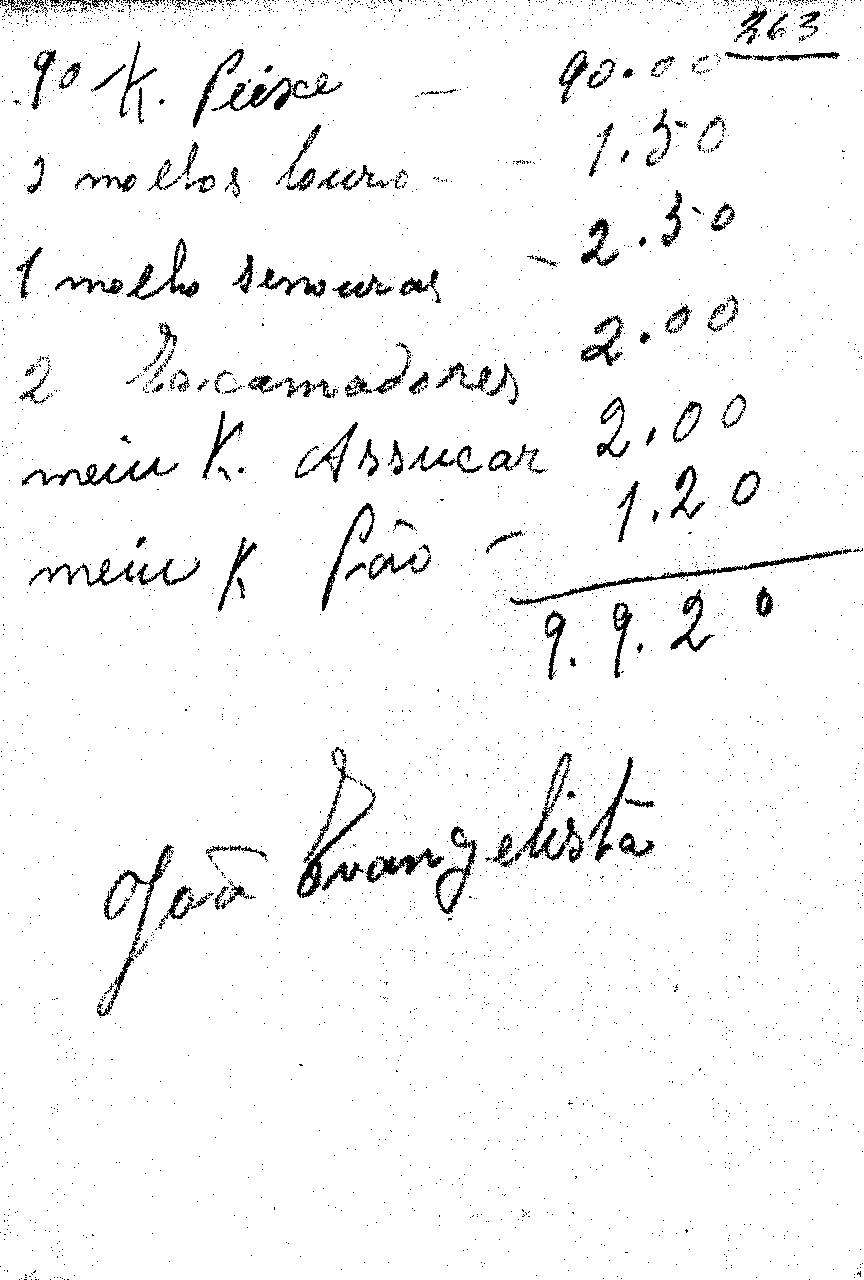 363
90 K. Peixe — 90.00
3 molhos louro - - 1.50
1 molho senouras - 2.50
2 Escamadores 2.00
meiu K. Assucar 2.00
meiu K Pão - 1.20
9.9.20
João Evangelista